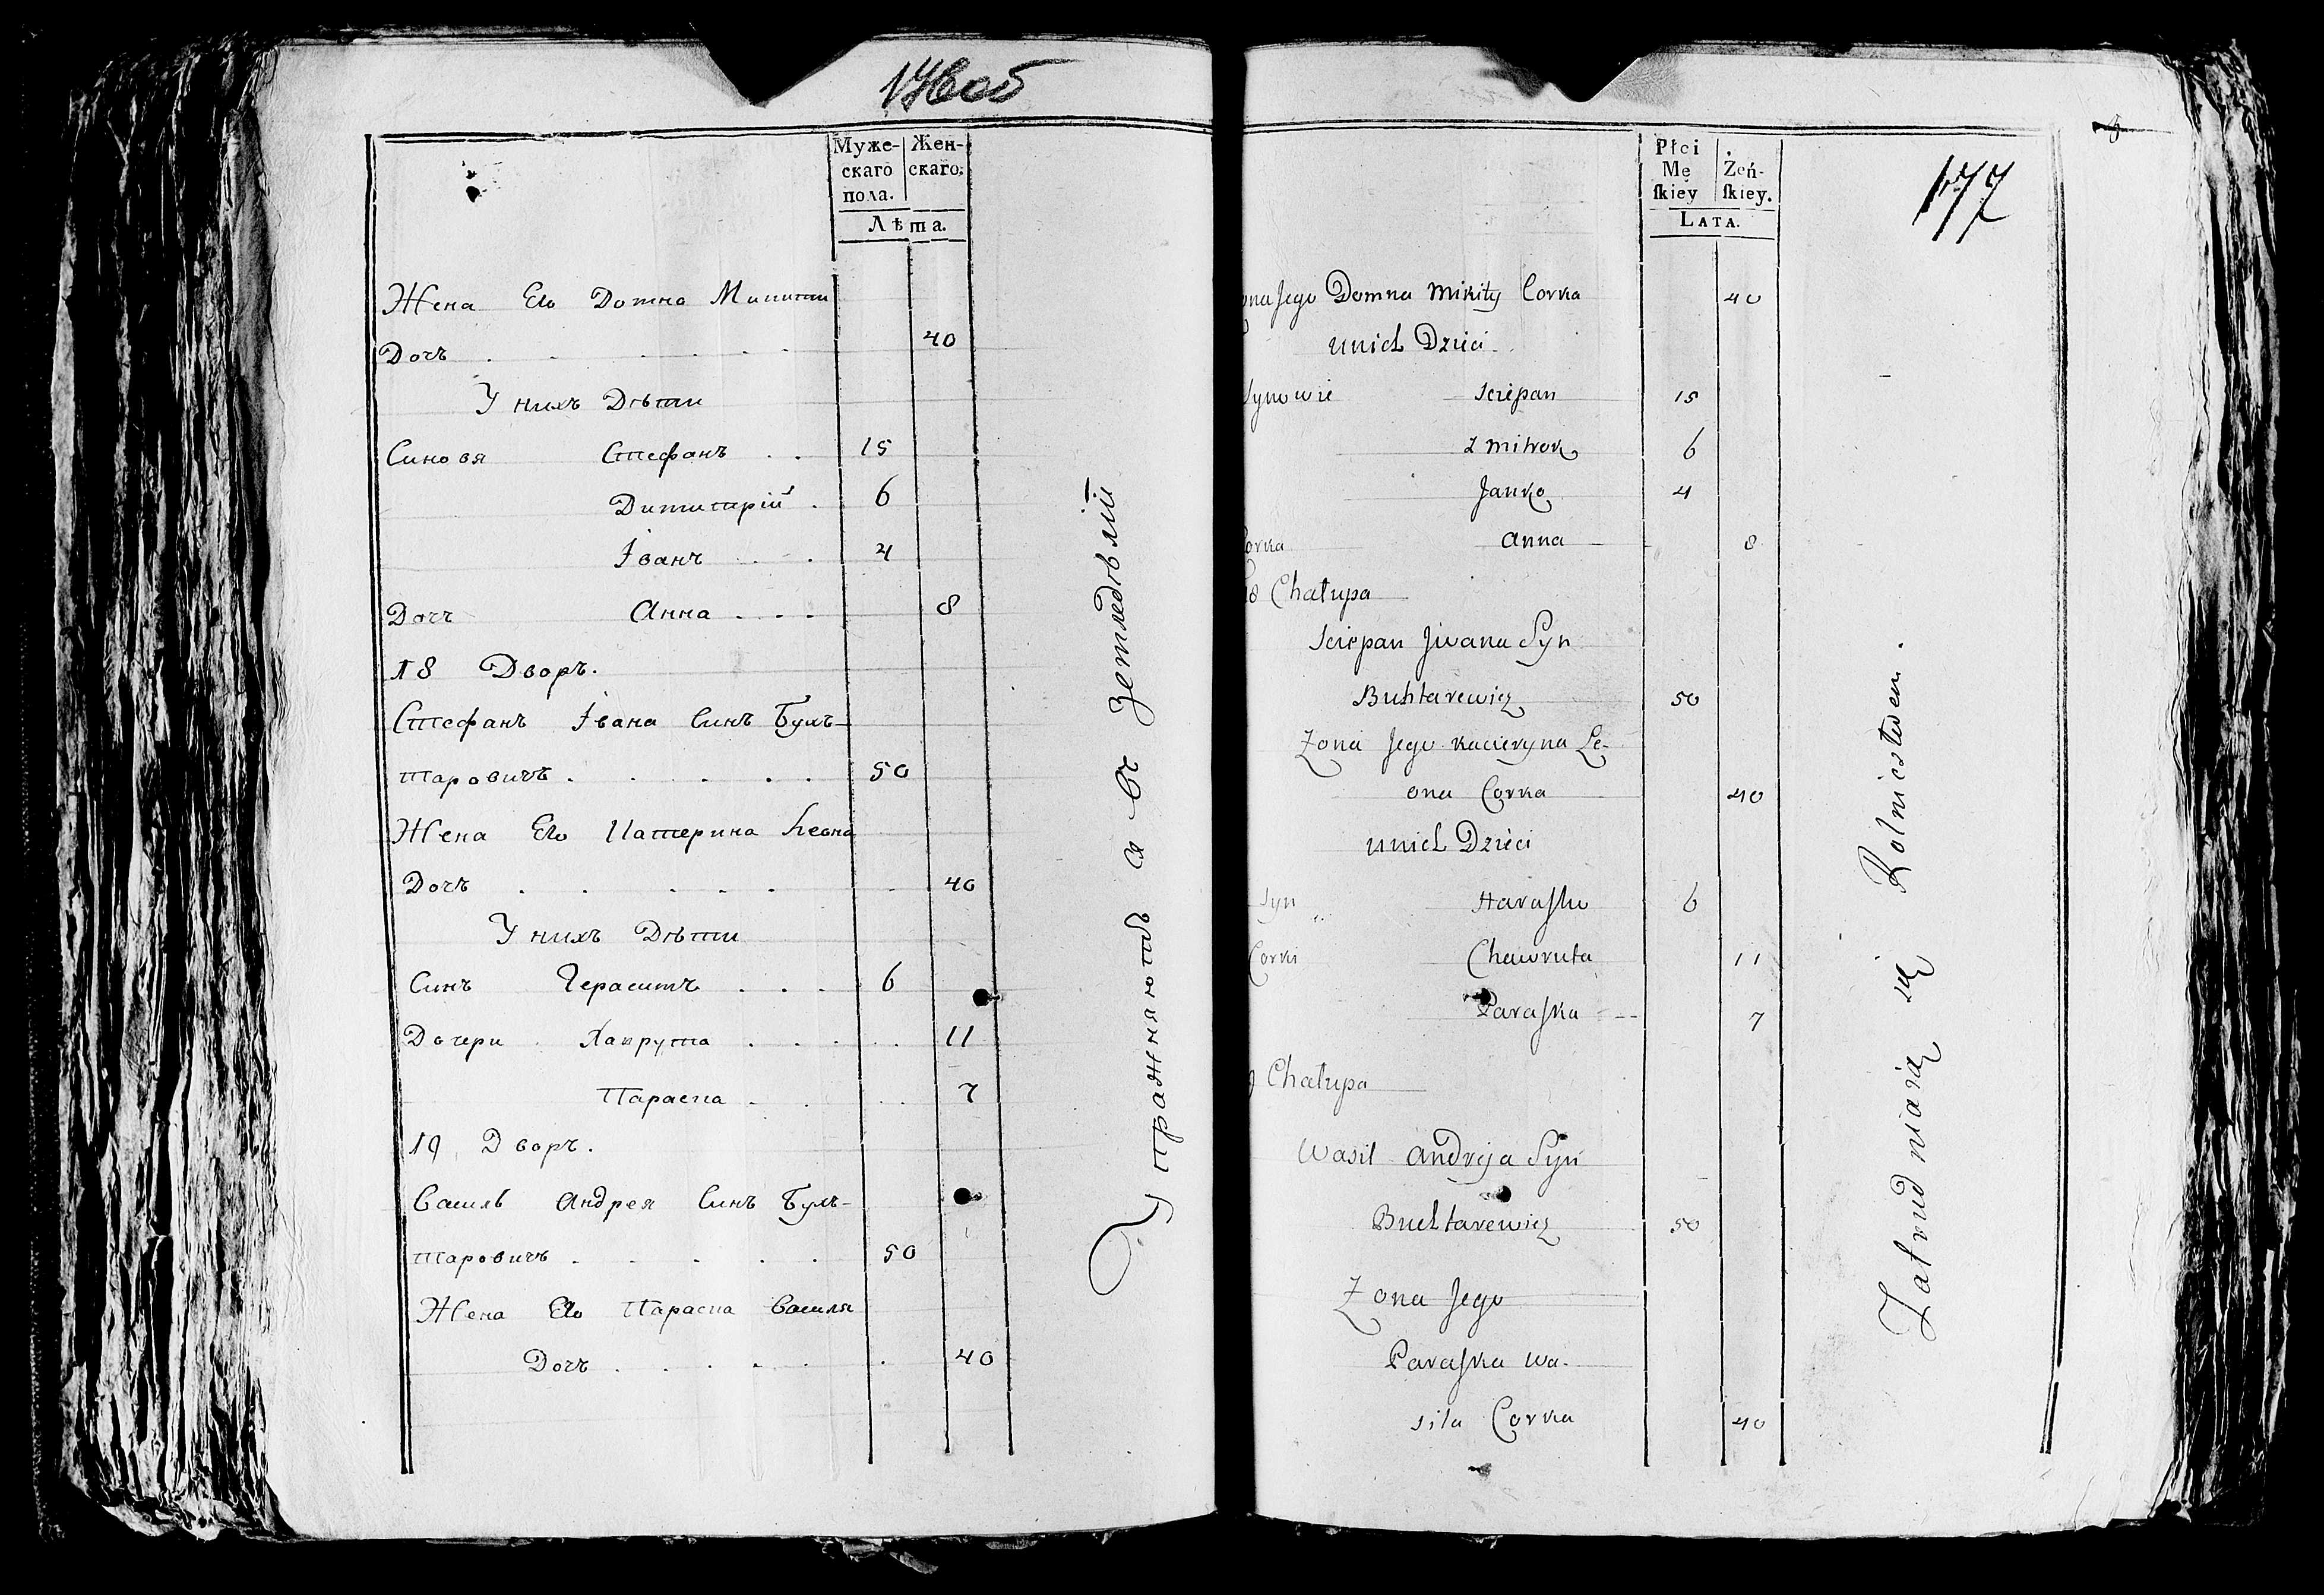 176об
Муже-
скаго
пола.
Жен-
скаго.
Лѣта.
Жена Его Домна Микити
Дочъ 40
У нихъ Дѣти
Синовя Стефанъ 15
Димитрій 6
Іванъ 4
Дочъ Анна 8
18 Дворъ.
Стефанъ Івана Синъ Бухъ-
таровичъ 50
Жена Его Катерина Леона
Дочъ 40
У нихъ Дѣти
Синъ Герасимъ 6
Дочери Хавруша 11
Параска 7
19 Дворъ.
Василь Андрея Синъ Бухъ-
таровичъ 50
Жена Его Параска Василя
Дочъ 40
Упражняютъ ся въ Земледѣліі
Płci
Mę
ſkiey
Żeń-
ſkiey.
Lata.
177
ona Jego Domna Mikity Corka 40
unich Dzieci
Synowie Sciepan 15
Zmitrok 6
Janko 4
Corka Anna 8
18 Chałupa
Sciepan Jwana Syn
Buhtarewicz 50
Zona Jego Kacieryna Le-
ona Corka 40
unich Dzieci
Syn Haraſko 6
Corki Chawruta 11
Paraſka 7
9 Chałupa
Wasil Andreja Syn
Buchtarewicz 50
Zona Jego
Paraſka Wa-
sila Corka 40
Zatrudniaią się Rolnictwem.